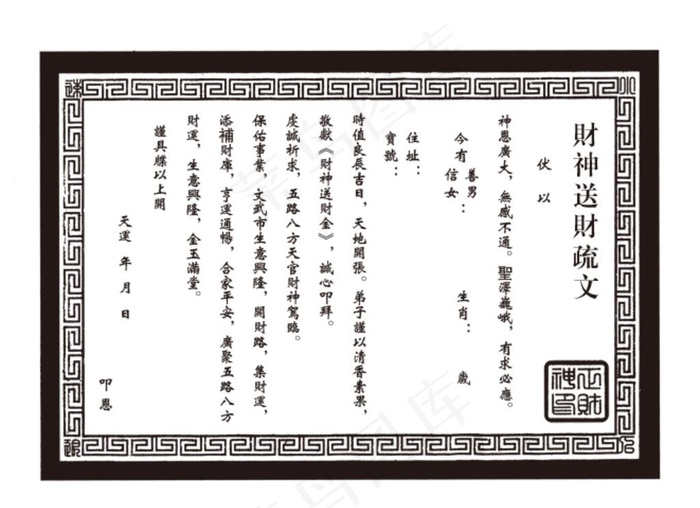 財神送財疏文
伏以
神恩廣大，無感不通。聖澤巍峨，有求必應。
今有善男信女：　生肖：　歲
住址：
寶號：
時值良辰吉日，天地開張。弟子謹以清香素果，
敬獻《財神送財金》，誠心叩拜。
虔誠祈求，五路八方天官財神駕臨。
保佑事業，文武市生意興隆，開財路，集財運，
添補財庫，亨運通暢，合家平安，廣聚五路八方
財運，生意興隆，金玉滿堂。
謹具牒以上開
天運 年 月 日
叩恩
正財神印